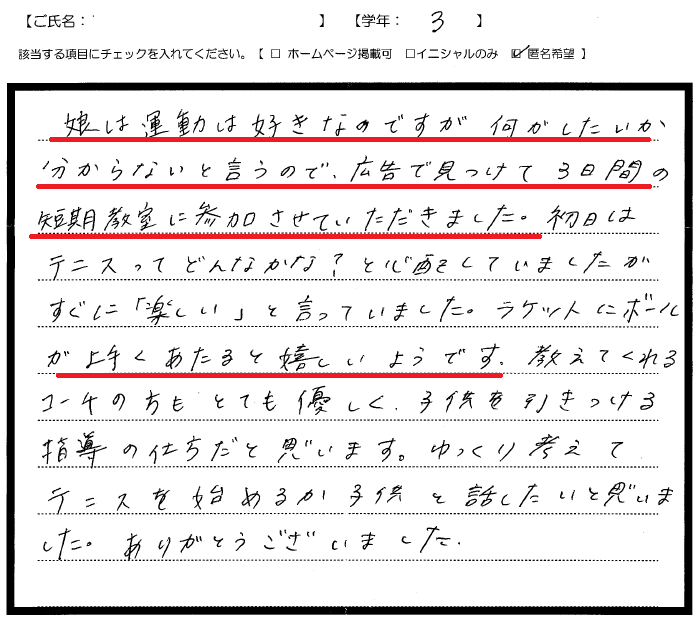 【ご氏名： 】 【学年： 3 】
該当する項目にチェックを入れてください。【 □ ホームページ掲載可 □イニシャルのみ ☑匿名希望 】
娘は運動は好きなのですが 何がしたいか
分からないと言うので、広告で見つけて 3日間の
短期教室に参加させていただきました。初日は
テニスってどんなかな？と心配をしていましたが
すぐに「楽しい」と言っていました。ラケットにボール
が上手くあたると嬉しいようです。教えてくれる
コーチの方もとても優しく、子供を引きつける
指導の仕方だと思います。ゆっくり考えて
テニスを始めるか子供と話したいと思いま
した。ありがとうございました。